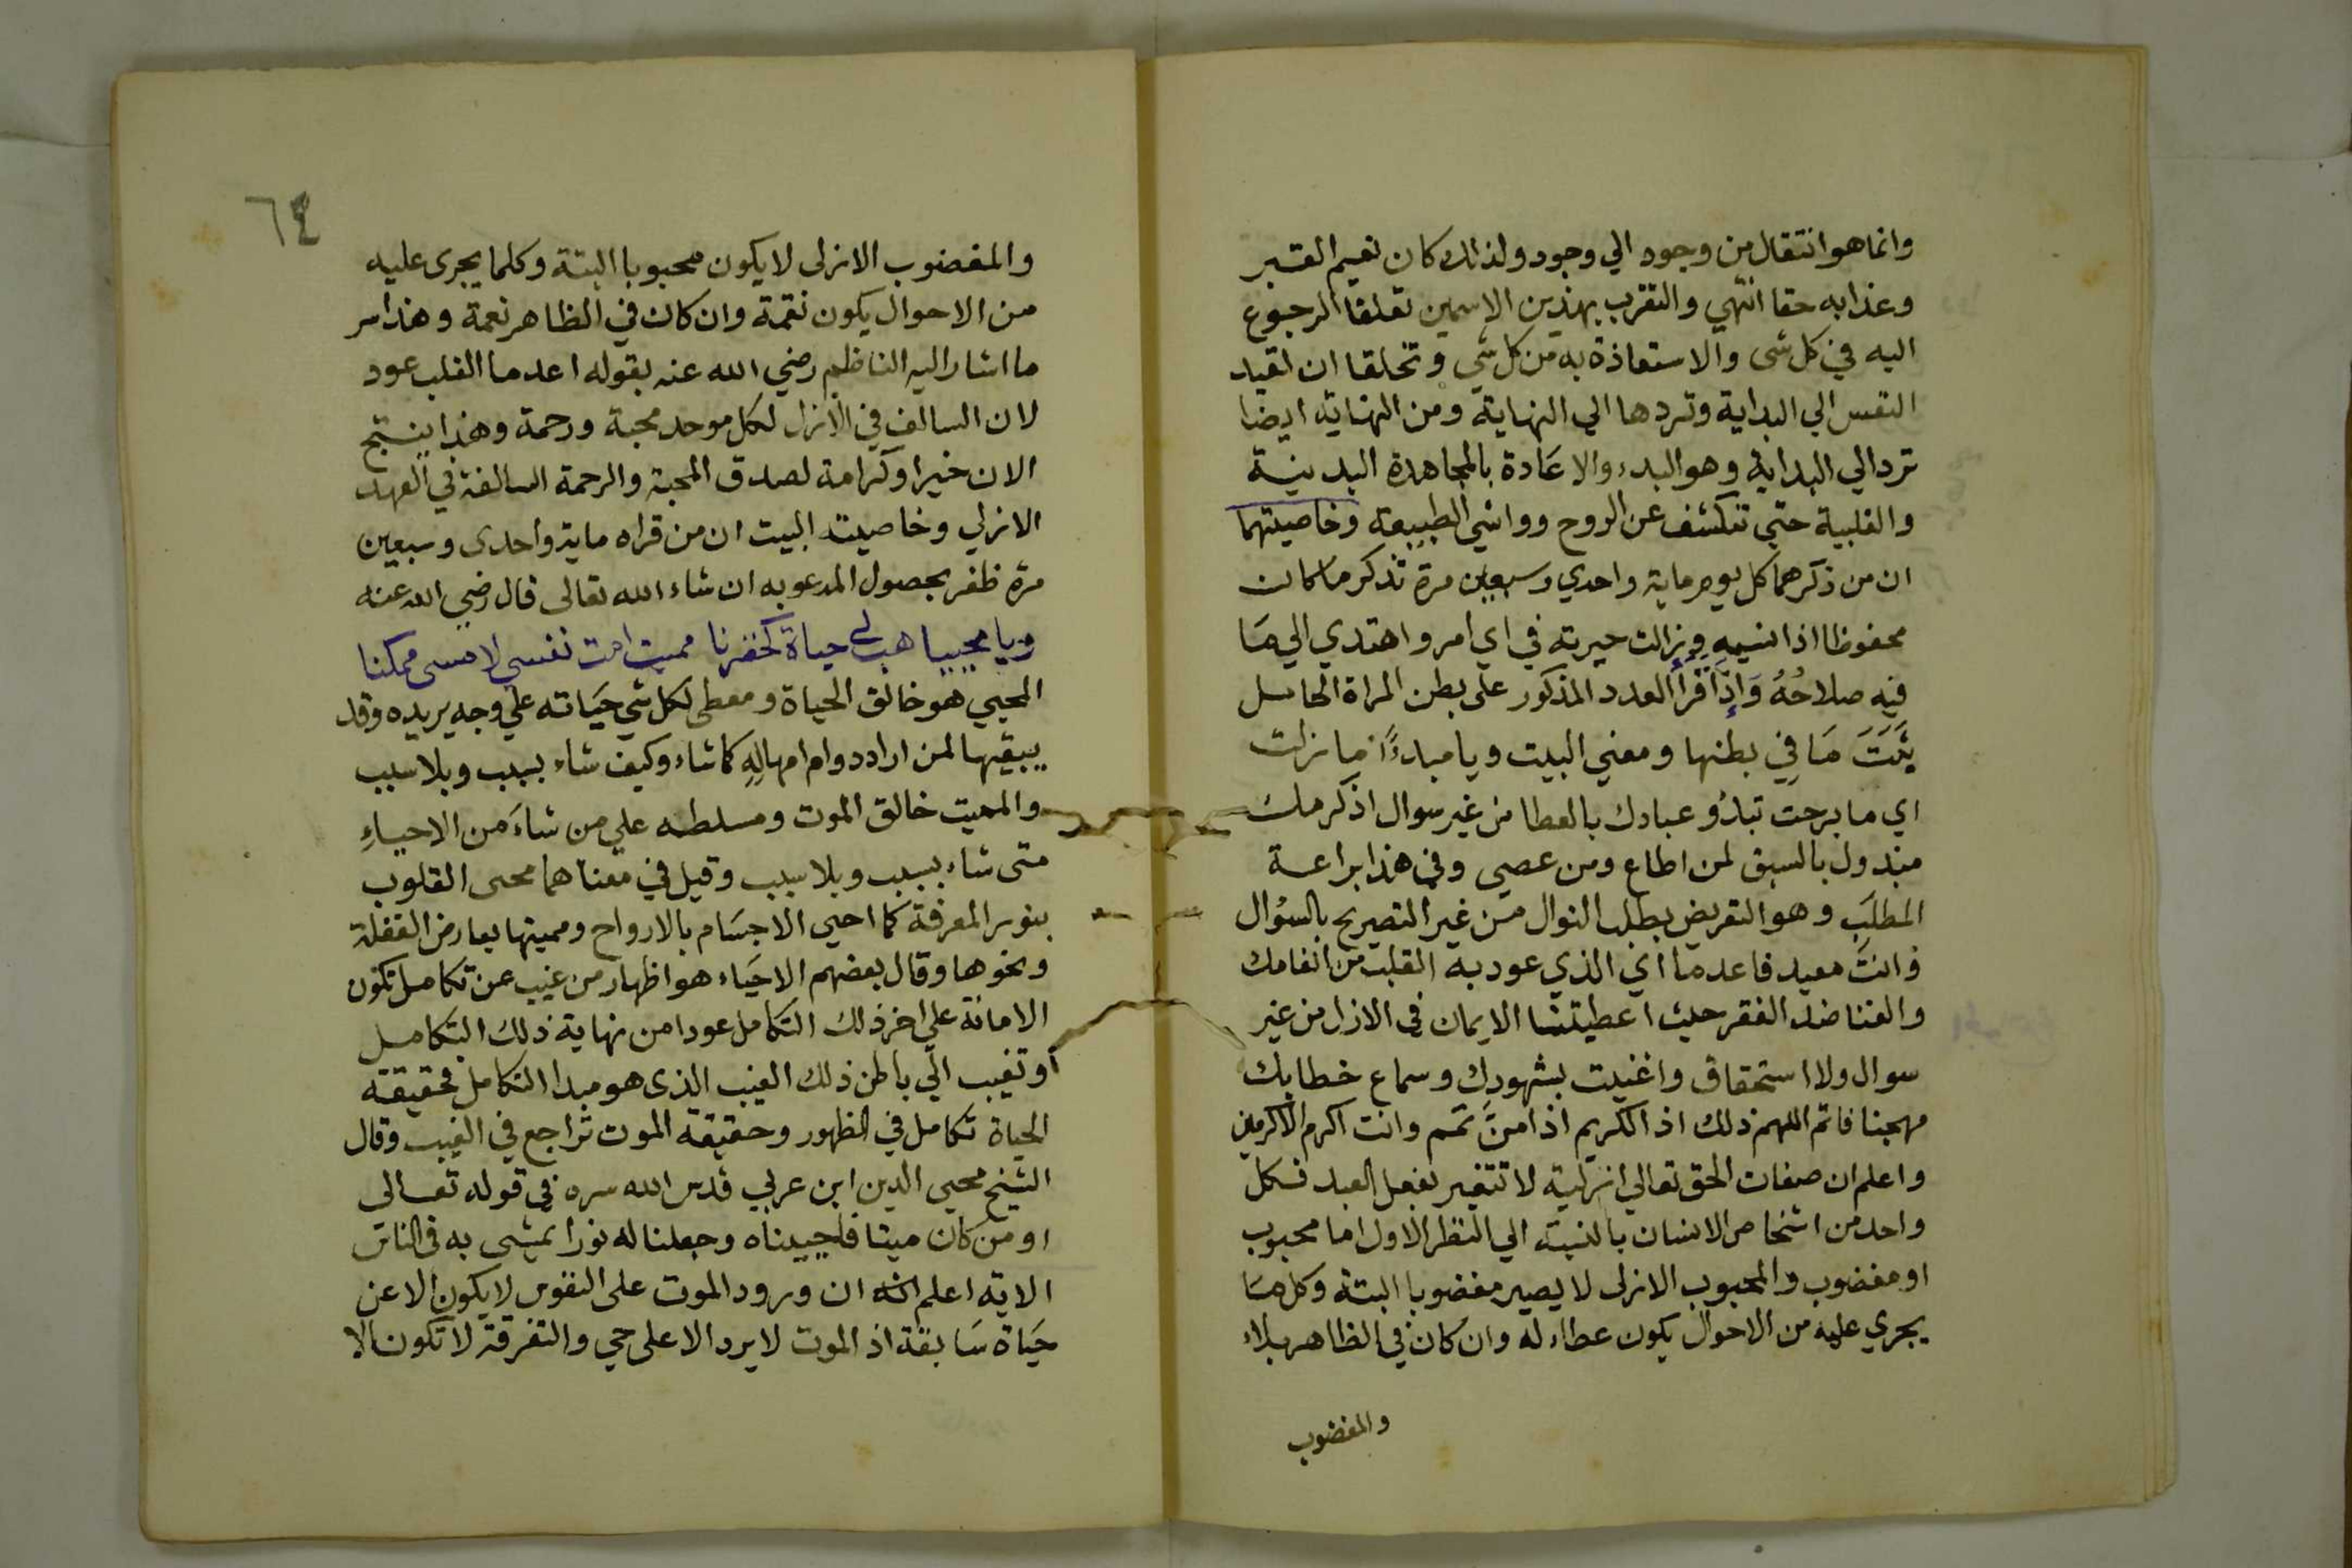 وانما هو انتقال من وجود الي وجود ولذلك كان نعيم القبر
وعذابه حقا انتهي والتقرب بهذين الاسمين تعلقا الرجوع
اليه في كل شي والاستعاذة به من كل شي وتخلقا ان تقيد
النفس الي البداية وتردها الي النهاية ومن النهاية ايضا
ترد الي البداية وهو البدء والاعَادة بالمجاهدة البدنية
والقلبية حتي تنكشف عن الروح وواشي الطبيعة وخاصيتهما
ان من ذكرهما كل يوم ماية واحدي وسبعين مرة تذكر ما كان
محفوظا اذا نسيه وزالت حيرته في اي امر واهتدي الي مَا
فيه صلاحُهُ وَاِذَا قرأ العدد المذكور علي بطن المراة الحامل
يثَبَتَ مَا فِي بطنها ومعني البيت ويا مبدءًا ما زلت
اي ما برحت تبدُؤ عبادك بالعطا من غير سوال اذ كرمك
مبذول بالسبق لمن اطاع ومن عصي وفي هذا براعة
المطلَب وهو التعريض بطلب النوال من غير التصريح بالسؤال
وانتَ معيد فاعد ما اي الذي عود به القلب من انعامك
والغنا ضد الفقر حيث اعطيتنا الايمان في الازل من غير
سوال ولا استحقاق واغنيت بشهودك وسماع خطابك
مهجنا فاتم اللهم ذلك اذ الكريم اذا منَّ تمم وانت اكرم الاكرمين
واعلم ان صفات الحق تعالي ازلية لا تتغير بفعل العبد فكل
واحد من اشخاص الانسان بالنسبة الي النظر الاول اما محبوب
او مغضوب والمحبوب الازلي لا يصير مغضوبا البتة وكل مَا
يجري عليه من الاحوال يكون عطاء له وان كان في الظاهر بلاء
والمغضوب
٦٤
والمغضوب الازلي لا يكون محبوبا البتة وكلما يجري عليه
من الاحوال يكون نقمة وان كان في الظاهر نعمة وهذا سر
ما اشار اليه الناظم رضي الله عنه بقوله اعد ما القلب عود
لان السالف في الازل لكل موحد محبة ورحمة وهذا ينتج
الان خيرا وكرامة لصدق المحبة والرحمة السالفة في العهد
الازلي وخاصيته البيت ان من قراه ماية واحدي وسبعين
مرة ظفر بحصول المدعو به ان شاء الله تعالي قال رضي الله عنه
ويا محييا هب لي حياة كخضرنا مميت امت نفسي لامسي ممكنا
المحيي هو خالق الحياة ومعطي لكل شي حيَاته علي وجه يريده وقد
يبقيها لمن اراد دوام امهالِهِ كما شاء وكيف شاء بسبب وبلا سبب
والمميت خالق الموت ومسلطه علي من شاءَ من الاحياءِ
متي شاء بسبب وبلا سبب وقيل في معناهما محيي القلوب
بنور المعرفة كما احيي الاجسَام بالارواح ومميتها بعارض الغفلة
ونحوها وقال بعضهم الاحيَاء هو اظهار من غيب عن تكامل تكون
الامانة علي اخر ذلك التكامل عودا من نهاية ذلك التكامل
او تغيب الي باطن ذلك الغيب الذي هو مبدا التكامل فحقيقة
الحياة تكامل في الظهور وحقيقة الموت تراجع في الغيب وقال
الشيخ محيي الدين ابن عربي قدس الله سره في قوله تعالي
اومن كان ميتا فاحييناه وجعلنا له نورا يمشي به في الناس
الاية اعلم انه ان ورود الموت علي النفوس لا يكون الا عن
حيَاة سَابقة اذ الموت لا يرد الا علي حي والتفرقة لا تكون الا